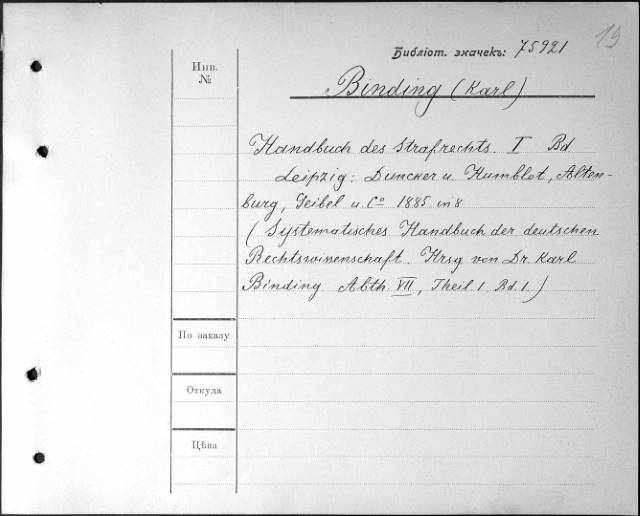 19
Библіот. значекъ: 75921
Инв.
№
Binding (Karl)
Handbuch des Strafrechts. I Bd
Leipzig: Duncker u. Humblot, Alten-
burg, Geibel u. Co 1885 in 8
(Systematisches Handbuch der deutschen
Rechtswissenschaft. Hrsg von Dr. Karl
Binding Abth. VII, Theil. 1. Bd. 1.)
По заказу
Откуда
Цѣна